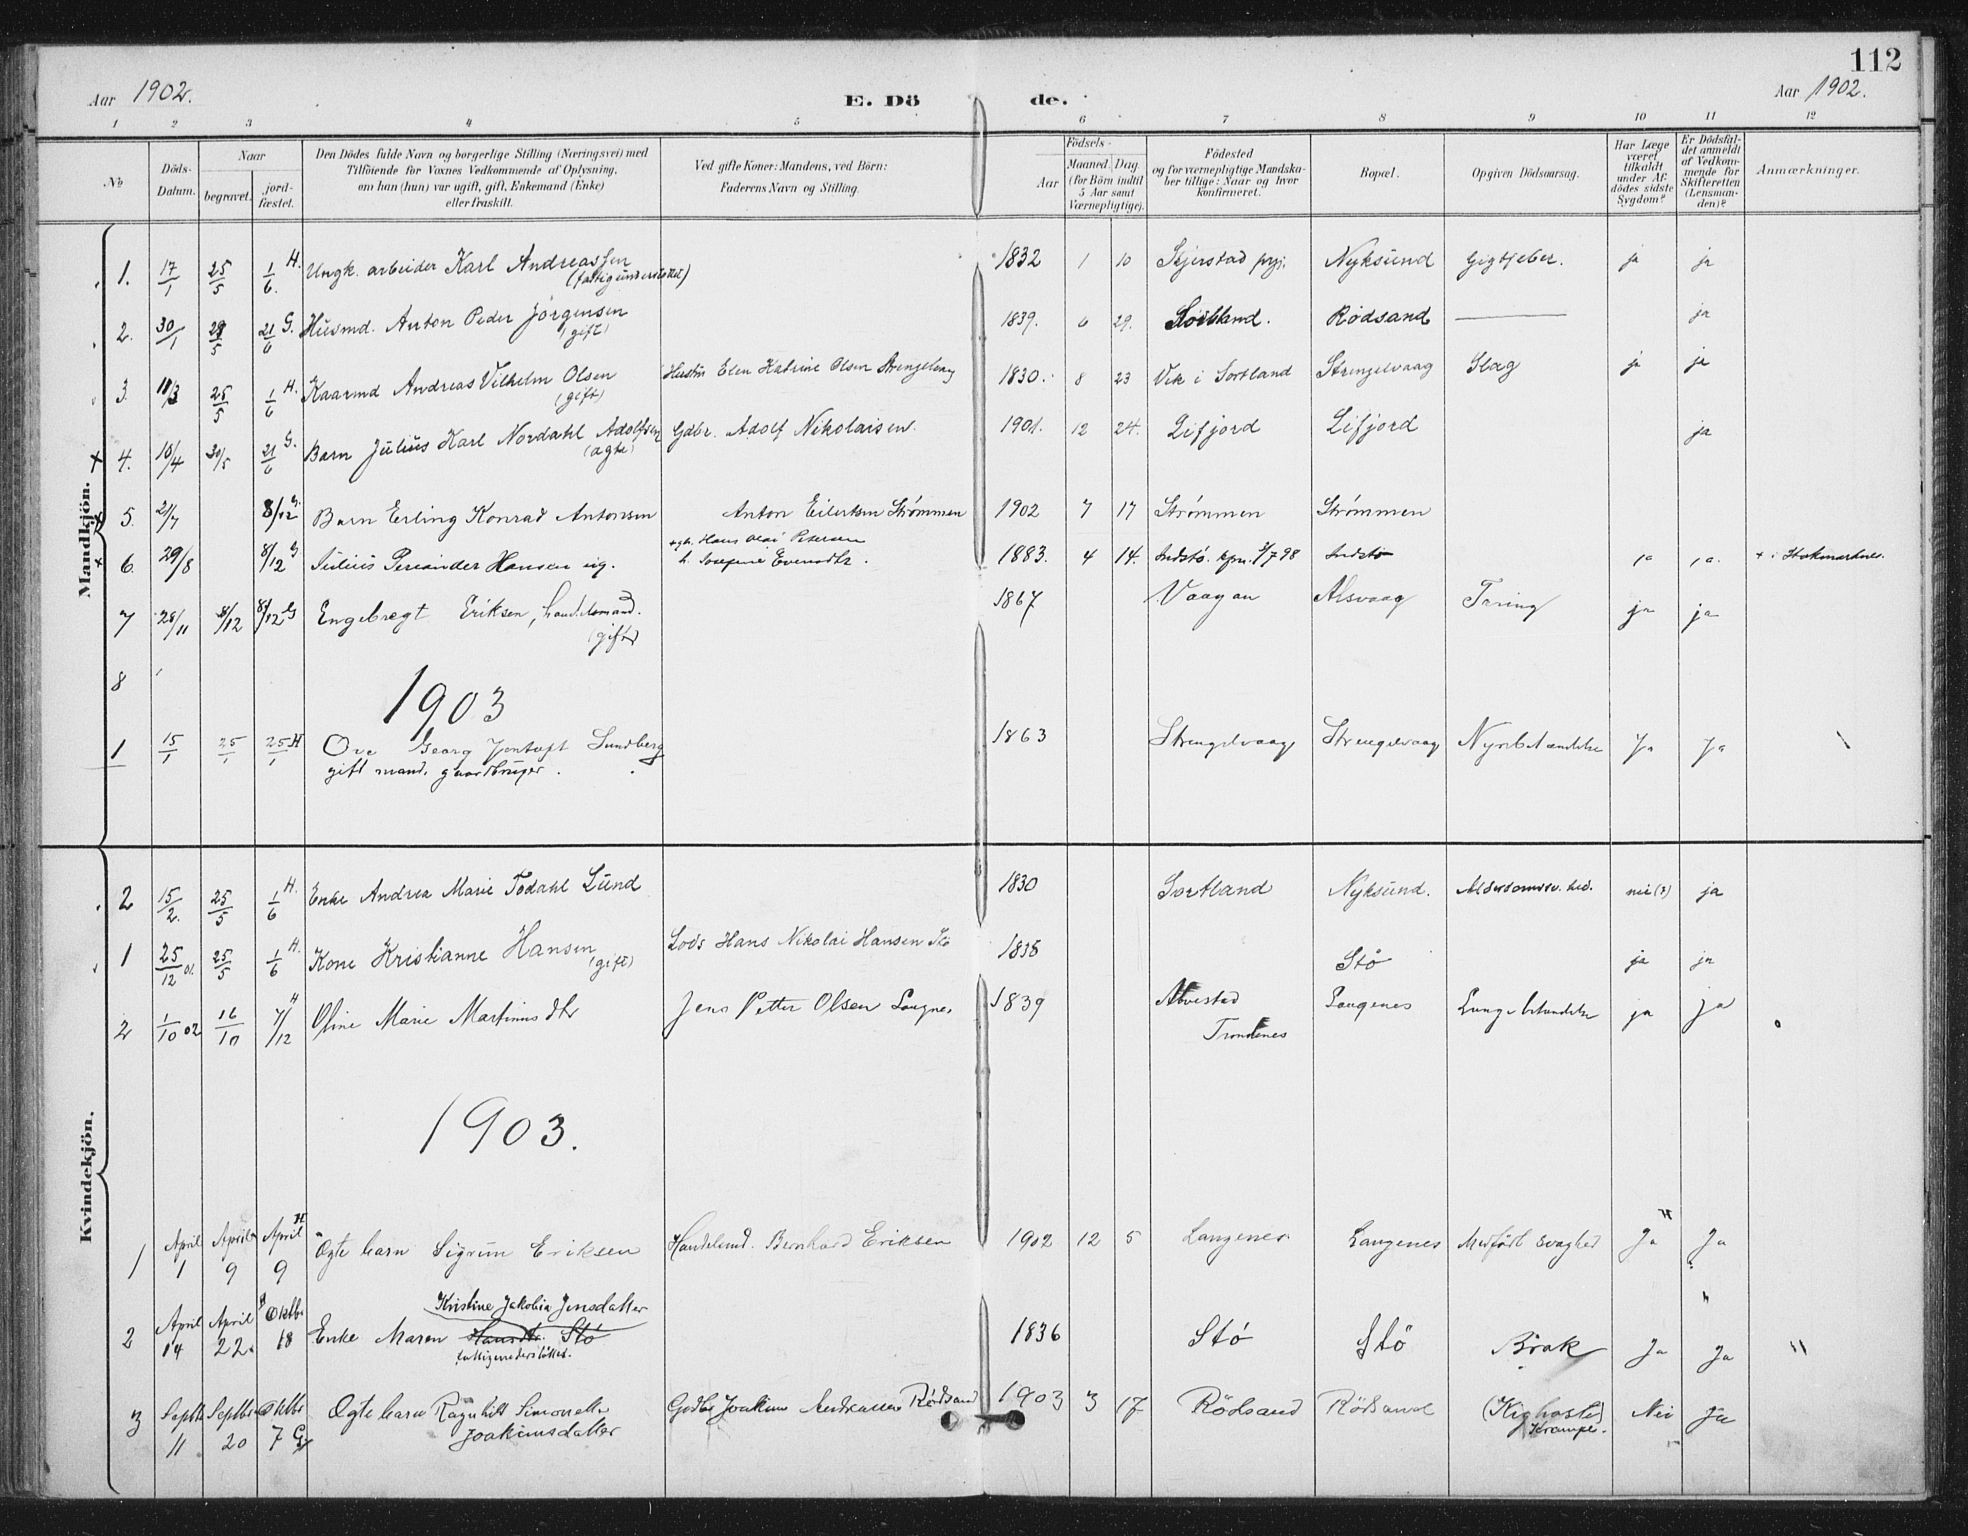 112
Aar 1902. E. Dö de. Aar 1902.
1 2 3 4 5 6 7 8 9 10 11 12
No
Döds-Datum.
Naar
begravet.
jord-fæstet.
Den Dödes fulde Navn og borgerlige Stilling (Næringsvei) med
Tilföiende for Voxnes Vedkommende af Oplysning,
om han (hun) var ugift, gift, Enkemand (Enke)
eller fraskilt.
Ved gifte Koner: Mandens, ved Börn:
Faderens Navn og Stilling.
Födsels-
Aar
Maaned. Dag.
(for Börn indtil
5 Aar samt
Værnepligtige).
Födested
og for værnepligtige Mandska-
ber tillige: Naar og hvor
konfirmeret.
Bopæl.
Opgiven Dödsaarsag.
Har Læge
været
tilkaldt
under Af-
dödes sidste
Sygdom?
Er Dödsfal-
det anmeldt
af Vedkom-
mende for
Skifteretten
(Lensman-
den)?
Anmærkninger.
Mandkjön.
1. 17/1 25/5 1/6. H. Ungk. arbeider Karl Andreassen 1832 1 10 Nyksund Gigtfeber. ja ja
2. 30/1 29/5 21/6 G. Husmd. Anton Peder Jörgensen 1839. 6 29. Sortland. Rödsand ja
(gift)
3. 11/3 25/5 1/6 H. Kaarmd Andreas Vilhelm Olsen Hustru Elen Katrine Olsen 1830. 8 23 Vik i Sortland Strengelvaag Slag ja ja
(gift)
+ 4. 10/4 30/5 21/6 G. Barn Julius Karl Nordahl Adolfsen Gdbr. Adolf Nikolaisen 1901. 12 24. Lifjord Lifjord ja
(ægte)
5. 21/7 8/12 G. Barn Erling Konrad Antonsen Anton Eilertsen Strømmen 1902 7 17 Strømmen Strømmen
+ 6. 29/8 8/12 G Julius Hansen ug. Hans Olai Petersen 1883. 4 14. Indstø. 3/7 98 Indstø ja ja. +
7 28/11 8/12 8/12 G Engebregt Eriksen, handelsmand. 1867 Vaagan Alsvaag Tæring ja ja
(gift)
8
1903
1 15/1 25/1 25/1 H Ove Georg Jentoft Lundberg 1863 Strengelvaag Strengelvaag Ja Ja
gift mand. gaardbruger.
Kvindekjön.
2 15/2. 25/5 1/6 H. Enke Andrea Marie Lund 1830 Sortland Nyksund. nei (?) ja
1 25/12 01. 25/5 1/6 H. Kone Kristianne Hansen Lods Hans Nikolai Hansen Stö 1838 Stö ja ja
(gift)
2 1/10 02 16/10 7/12 H Oline Marie Martinusdtr Jens Petter Olsen 1839 Langenes Lungebetændelse ja ja
Trondenes
1903.
1 April 1 April 9 April 9 H Ögte barn Sigrun Eriksen Handelsmd. Bernhard Eriksen 1902 12 5 Langenes Langenes Medfödt svaghed Ja Ja
Kristine Jakobia Jensdatter
2 April 14 April 22. Oktbr 18 H Enke Maren Hansdtr. Stö 1836 Stö Stö Brok Ja Ja "
3 Septb 11 Septbr 20 Oktbr 7 G Ögte barn Ragnhild Joakimsdatter Gdbr Joakim Andreassen Rödsand 1903 3 17 Rödsand Rödsand (Kighoste) Nei Ja
Krampe.